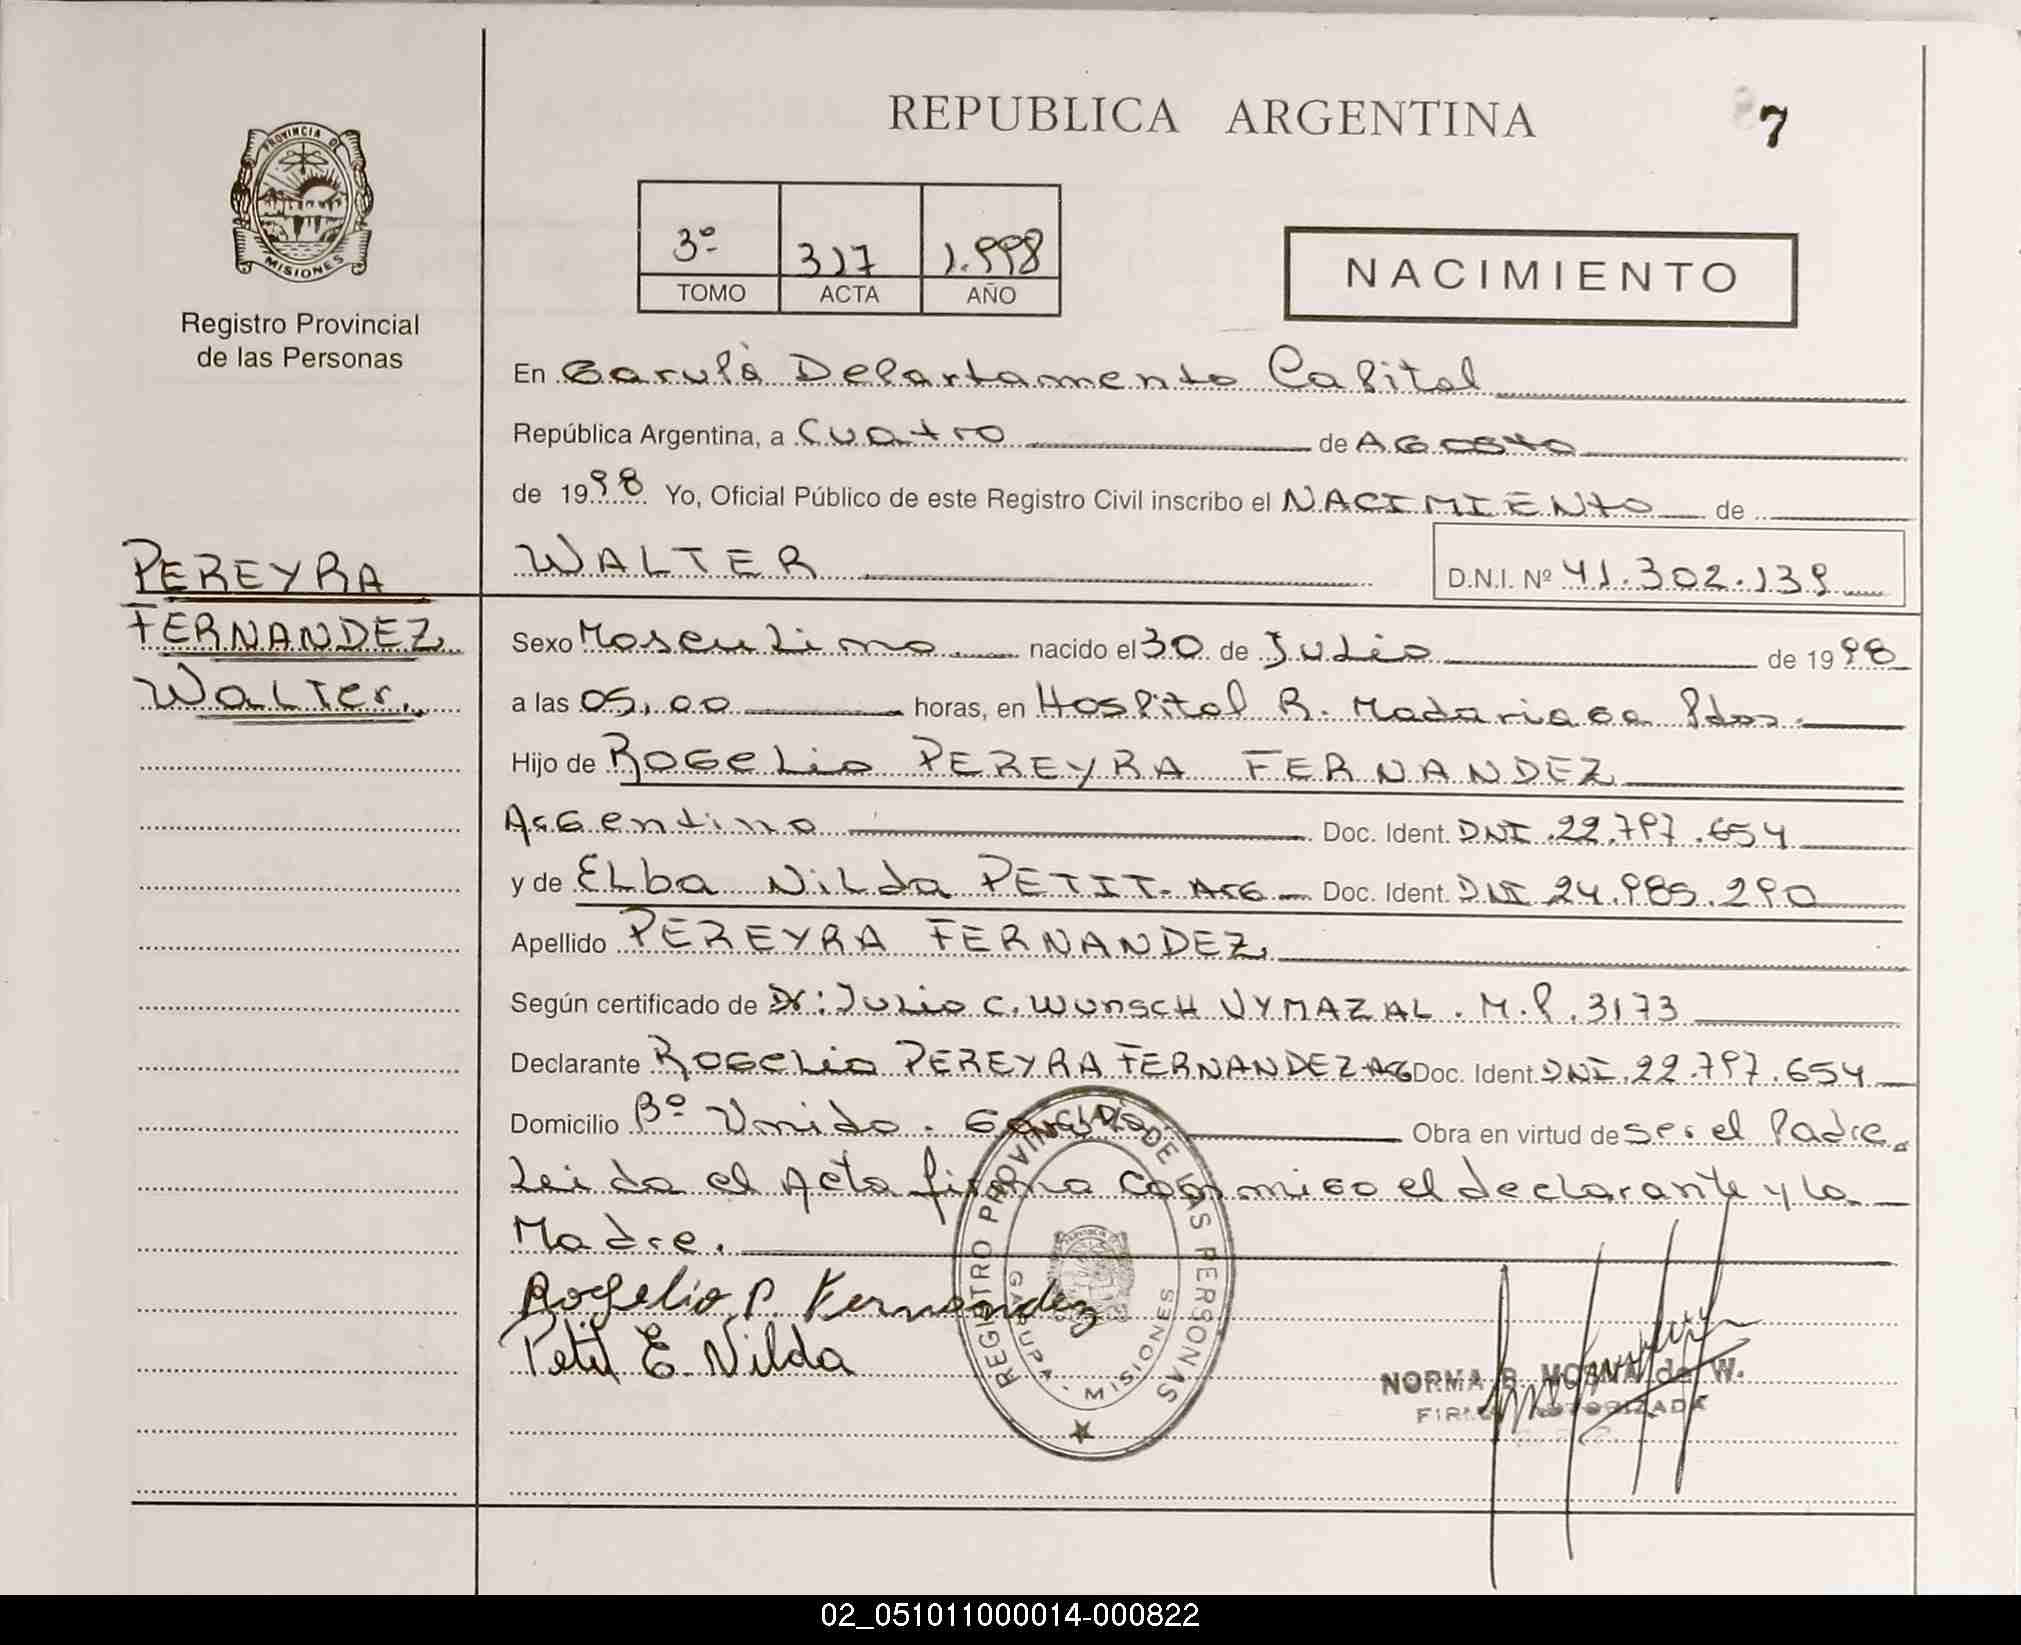 REPUBLICA ARGENTINA
7
PROVINCIA DE
MISIONES
Registro Provincial
de las Personas
3º 317 1.998
TOMO ACTA AÑO
NACIMIENTO
En Garupá Departamento Capital
República Argentina, a Cuatro de Agosto
de 1998 Yo, Oficial Público de este Registro Civil inscribo el NACIMIENto de
WALTER
D.N.I. Nº 41.302.139
PEREYRA
FERNANDEZ
Walter.
Sexo Masculino. nacido el 30 de Julio de 1998
a las 05,00 horas, en Hospital R. Madariaga Pdas.
Hijo de Rogelio PEREYRA FERNANDEZ
Argentino Doc. Ident. DNI.22.797.654
y de ELba NiLda PETIT-Arg Doc. Ident. DNI 24.985.290
Apellido PEREYRA FERNANDEZ
Según certificado de Dr: Julio C. WunscH VYMAZAL. M.P. 3173
Declarante Rogelio PEREYRA FERNANDEZ Arg Doc. Ident. DNI.22.797.654
Domicilio Bº Unido. Garupá Obra en virtud de Ser el Padre.
Leida el Acta firma conmigo el declarante y la
Madre.
Rogelio P. Fernandez
Petit E. Nilda
REGISTRO PROVINCIAL DE LAS PERSONAS
GARUPA - MISIONES
NORMA B. MOSNA de W.
FIRMA AUTORIZADA
02_051011000014-000822